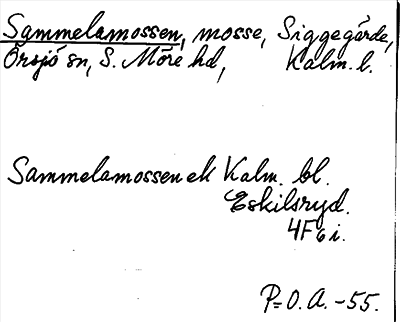 Sammelamossen, mosse, Siggegärde,
Örsjö sn, S. Möre hd, Kalm. l.
Sammelamossen ek Kalm. bl.
Eskilsryd.
4F 6 i.
P=O. A. -55.